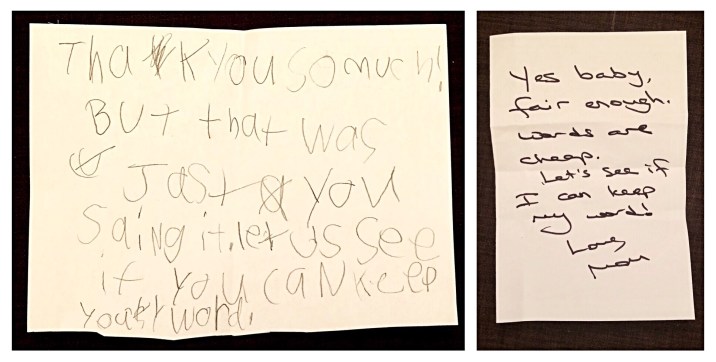 Thank You So much!
BUt that was
Jast You
Saing it. let us see
if you can keep
your word.
Yes baby,
fair enough.
words are
cheap.
Let's see if
I can keep
my word!
Love
Mom